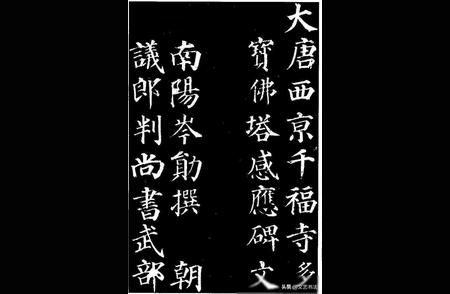 大唐西京千福寺多
寶佛塔感應碑文
南陽岑勛撰 朝
議郎判尚書武部
头条 @文志书法